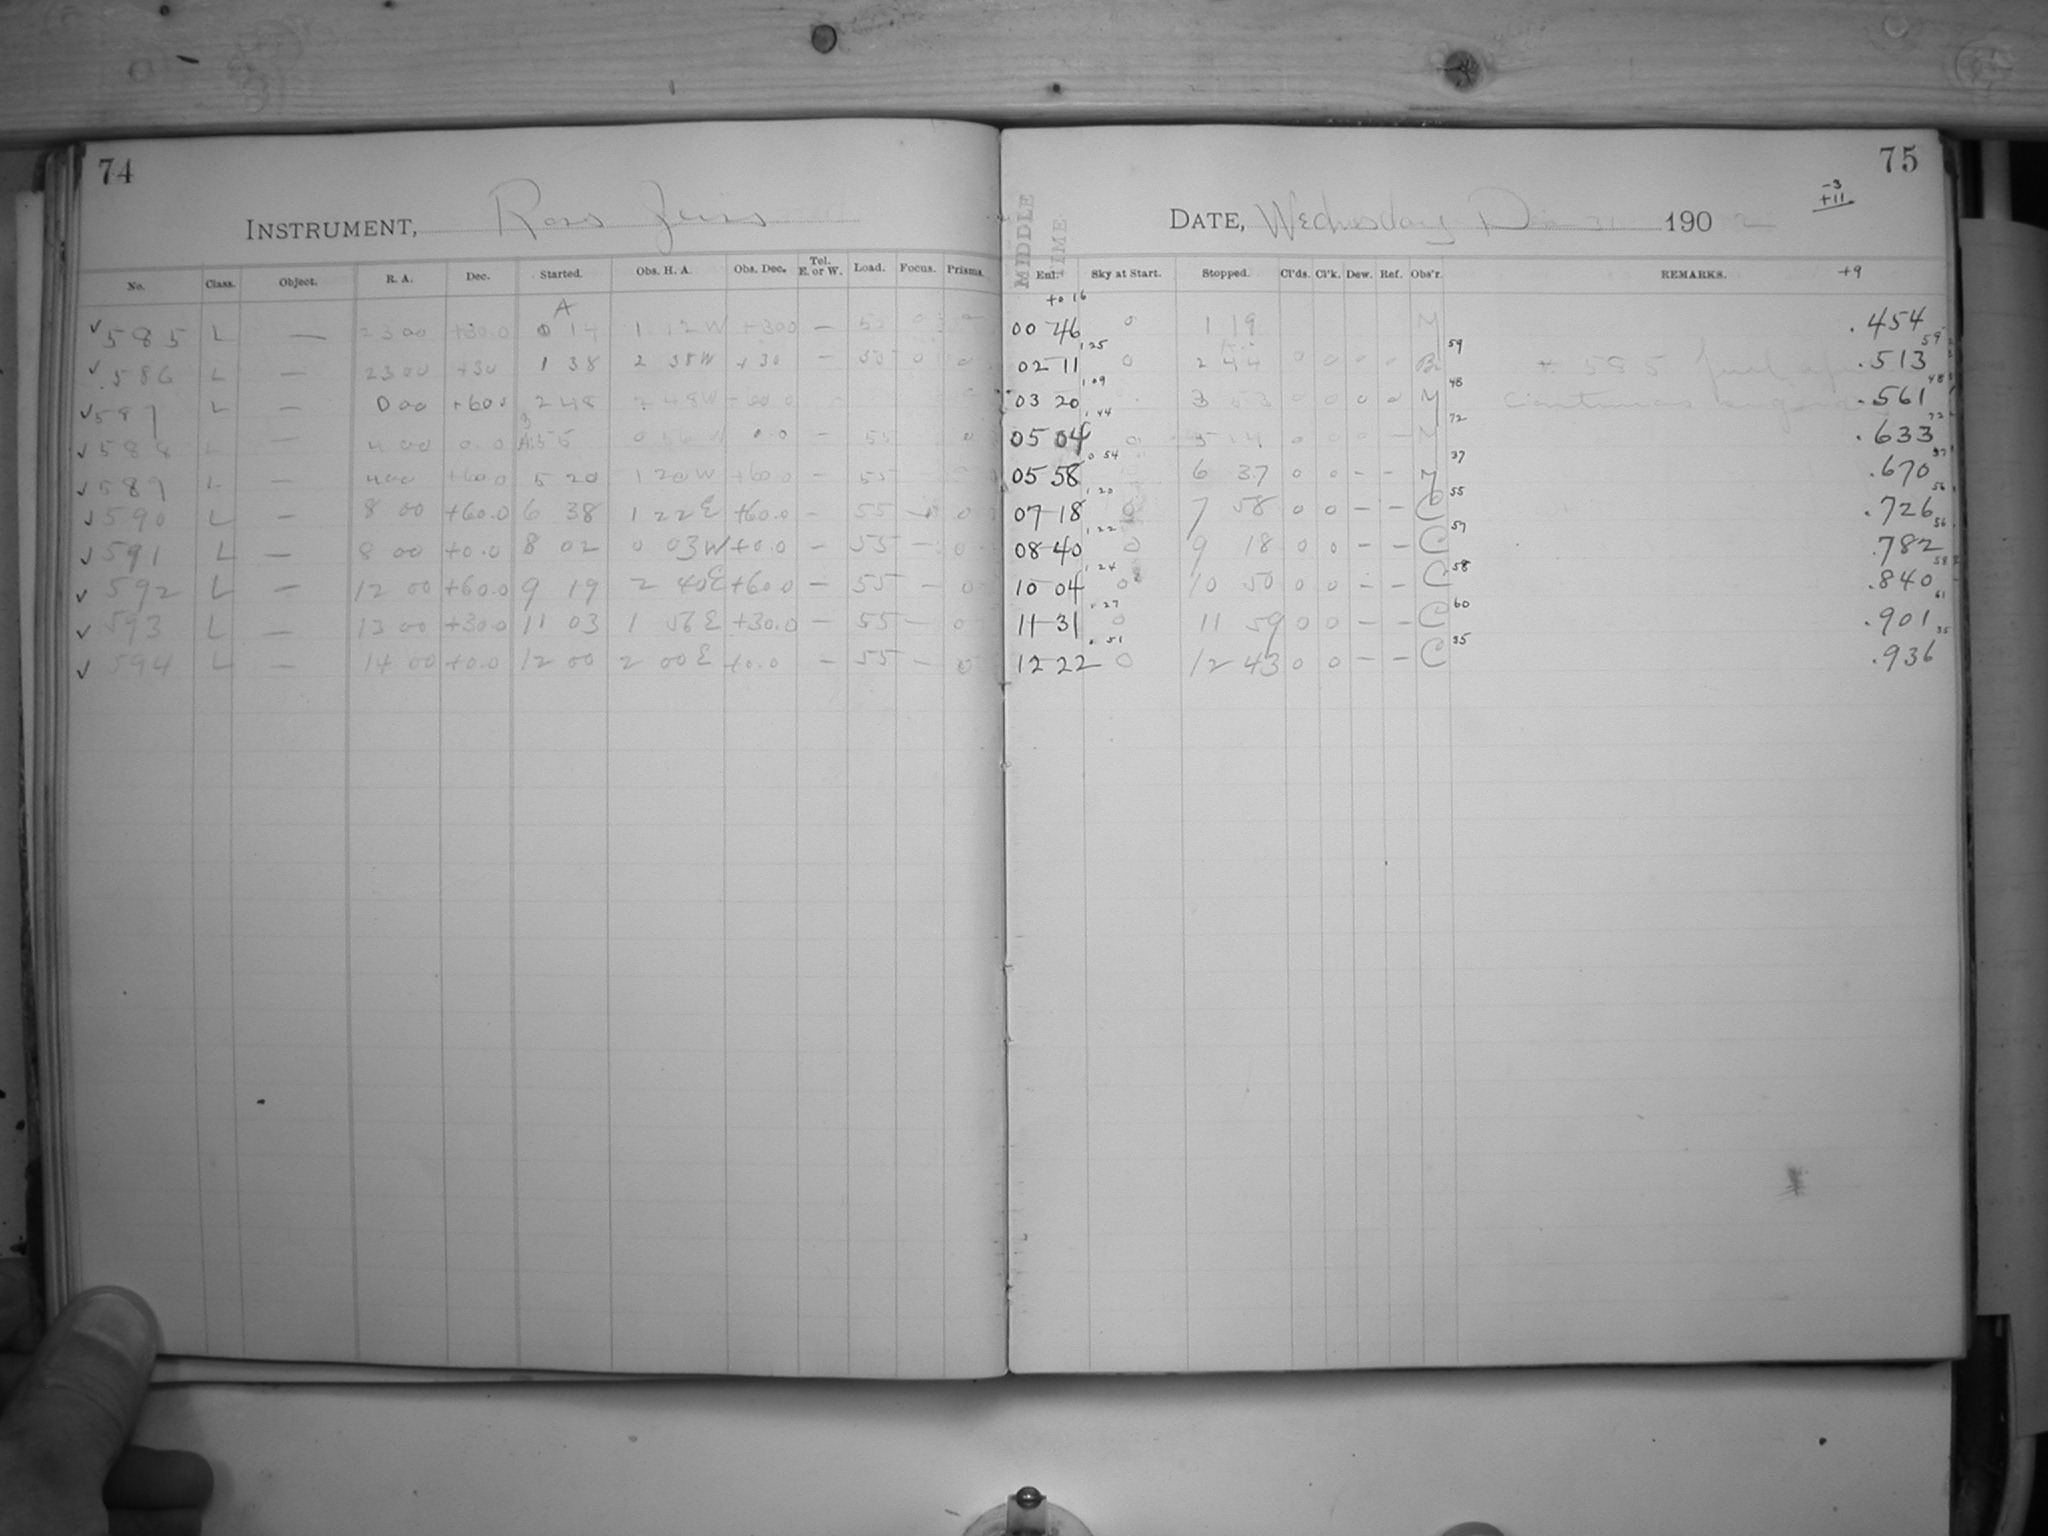 74
INSTRUMENT, Ross Zeiss
No. Class. Object. R. A. Dec. Started. Obs. H. A. Obs. Dec. Tel. E. or W. Load. Focus. Prisms.
A
✓ 585 L — 23 00 +30.0 0 14 1 12 W +30.0 — 55
✓ 586 L — 23 00 +30 1 38 2 38 W +30 — 55 0 0
✓ 587 L — 0 00 +60.0 2 48 2 48 W
✓ 588 L — 4 00 0.0 0.0 — 55 0
✓ 589 L — 4 00 +60.0 5 20 1 20 W +60.0 — 55
✓ 590 L — 8 00 +60.0 6 38 1 22 E +60.0 — 55 — 0
✓ 591 L — 8 00 +0.0 8 02 0 03 W +0.0 — 55 — 0
✓ 592 L — 12 00 +60.0 9 19 2 40 E +60.0 — 55 — 0
✓ 593 L — 13 00 +30.0 11 03 1 56 E +30.0 — 55 — 0
✓ 594 L — 14 00 +0.0 12 00 2 00 E +0.0 — 55 — 0
75
-3
+11
MIDDLE TIME
DATE, Wednesday Dec 31 1902
Ent. Sky at Start. Stopped. Cl'ds. Cl'k. Dew. Ref. Obs'r. REMARKS. +9
+0 16
00 46 0 1 19 M .454
1 25 59 59
02 11 0 2 44 0 0 0 0 B * 585 .513
1 09 48 48
03 20 3 53 0 0 0 0 M .561
1 44 72 72
05 04 0 5 14 0 0 0 — M .633
0 54 37 37
05 58 6 37 0 0 — — M .670
1 20 55 56
07 18 0 7 58 0 0 — — C .726
1 22 57 56
08 40 0 9 18 0 0 — — C .782
1 24 58 58
10 04 0 10 50 0 0 — — C .840
1 27 60 61
11 31 0 11 59 0 0 — — C .901
0 51 35 35
12 22 0 12 43 0 0 — — C .936